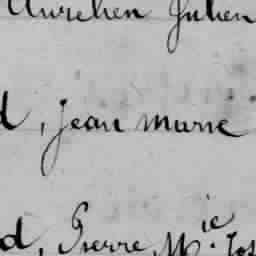 Aurelien Julien
d, jean marie
d, Pierre M.ie Jos